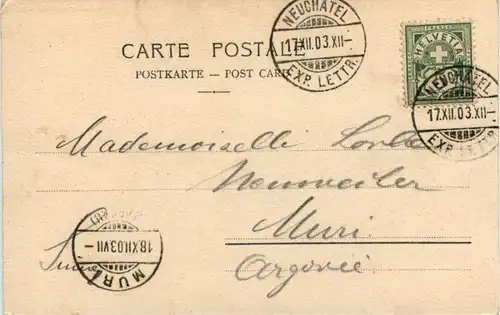 CARTE POSTALE
POSTKARTE — POST CARD
NEUCHATEL
17.XII.03.XII—
EXP. LETTR.
HELVETIA
NEUCHATEL
17.XII.03.XII—
EXP. LETTR.
Mademoiselle
Neuweiler
Muri
Argovie
18.XII.03.VII—
MURI